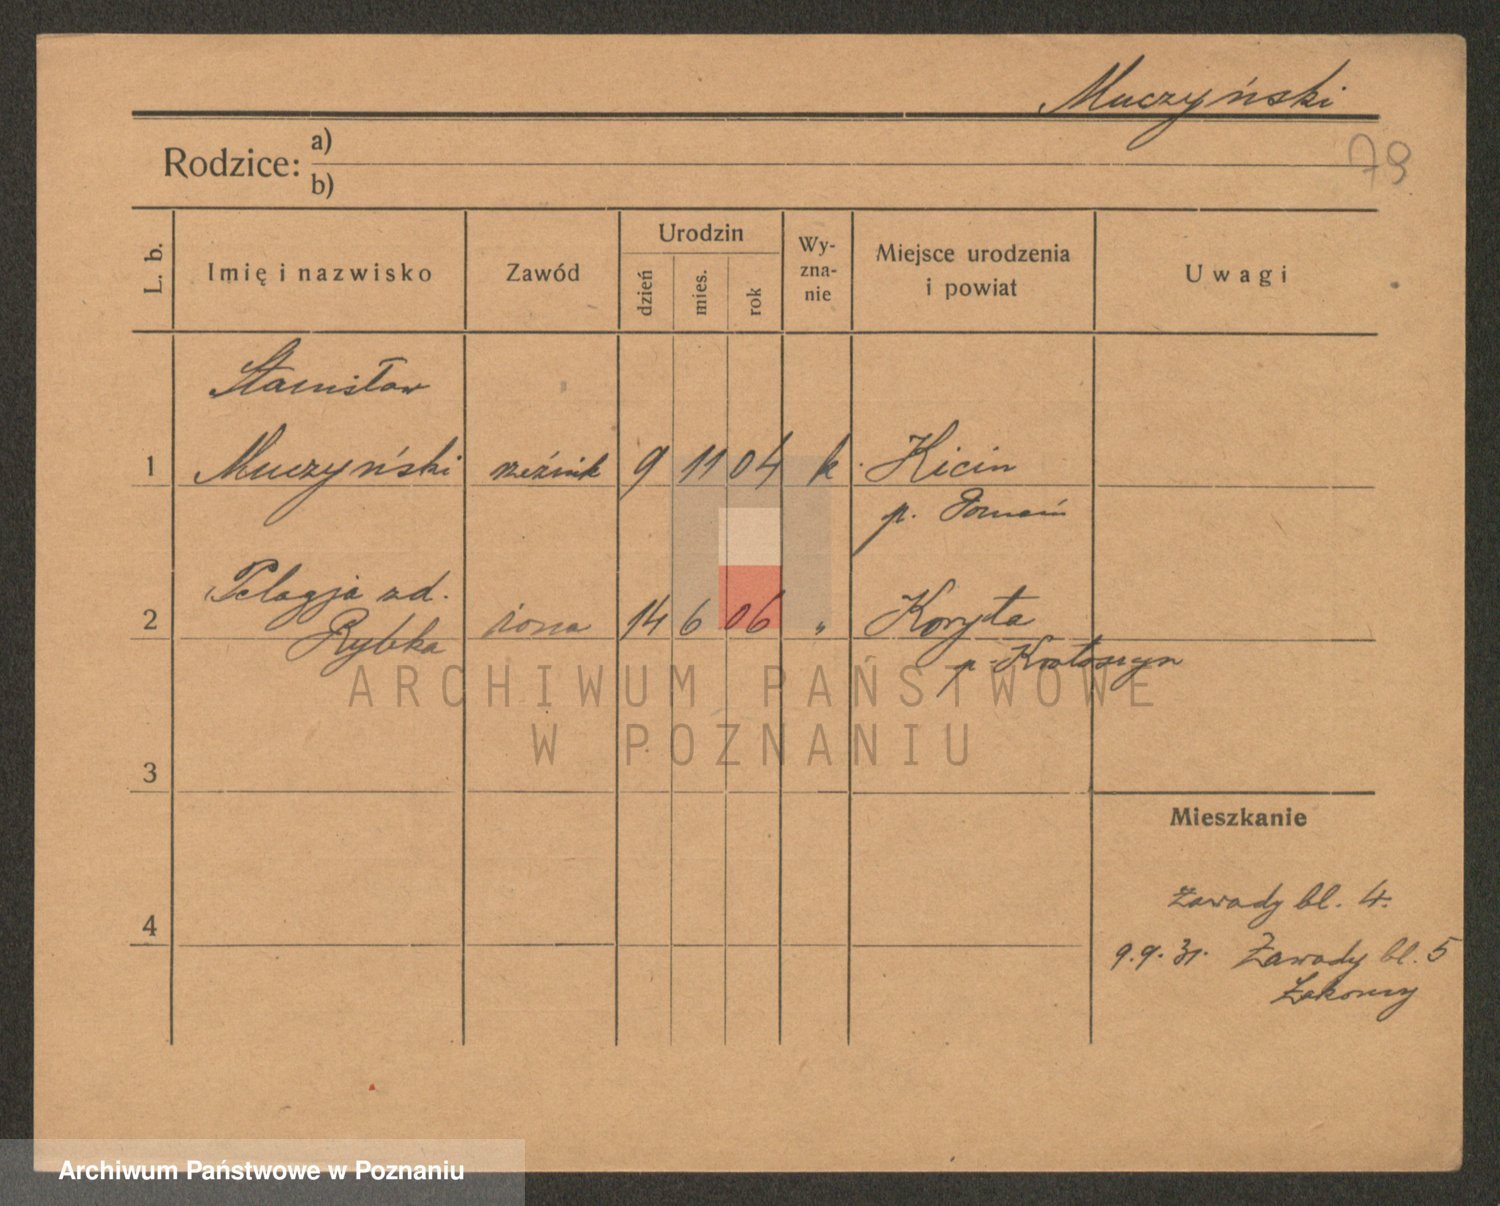 Muczyński
79
Rodzice: a)
b)
L. b.
Imię i nazwisko
Zawód
Urodzin
dzień
mies.
rok
Wy-
zna-
nie
Miejsce urodzenia
i powiat
Uwagi
Stanisław
1 Muczyński rzeźnik 9 11 04 k. Kicin
p. Poznań
Pelagja zd.
2 Rybka żona 14 6 06 „ Koryta
p. Krotoszyn
ARCHIWUM PAŃSTWOWE
W POZNANIU
3
Mieszkanie
Zawady bl. 4.
4
9.9.31. Zawady bl. 5
Archiwum Państwowe w Poznaniu